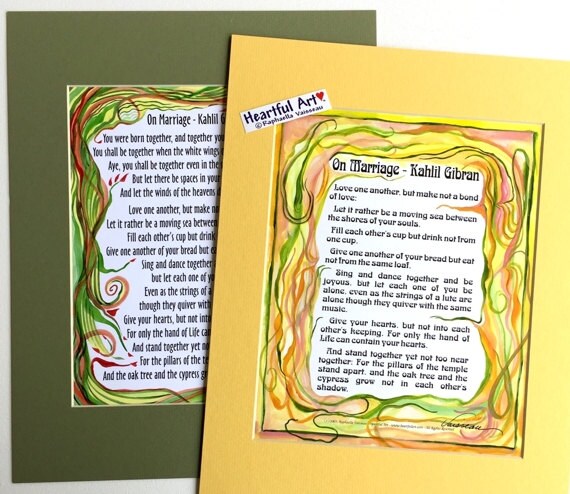 On Marriage - Kahlil G
You were born together, and together yo
You shall be together when the white wings
Aye, you shall be together even in the
But let there be spaces in your
And let the winds of the heavens d
Love one another, but make no
Let it rather be a moving sea betw
Fill each other's cup but drink n
Give one another of your bread but ea
Sing and dance togeth
but let each one of y
Even as the strings of a
though they quiver with
Give your hearts, but not into
For only the hand of Life can
And stand together yet no
For the pillars of the temple
And the oak tree and the cypress gro
Heartful Art
© Raphaella Vaisseau
On Marriage - Kahlil Gibran
Love one another, but make not a bond
of love:
Let it rather be a moving sea between
the shores of your souls.
Fill each other's cup but drink not from
one cup.
Give one another of your bread but eat
not from the same loaf.
Sing and dance together and be
joyous, but let each one of you be
alone, even as the strings of a lute are
alone though they quiver with the same
music.
Give your hearts, but not into each
other's keeping. For only the hand of
Life can contain your hearts.
And stand together yet not too near
together: For the pillars of the temple
stand apart, and the oak tree and the
cypress grow not in each other's
shadow.
Vaisseau